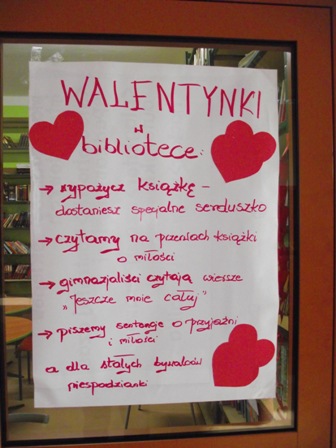 WALENTYNKI
W
bibliotece:
→ wypożycz książkę -
dostaniesz specjalne serduszko
→ czytamy na przerwach książki
o miłości
→ gimnazjaliści czytają wiersze
"Jeszcze mnie całuj"
→ piszemy sentencje o przyjaźni
i miłości
a dla stałych bywalców
niespodzianki